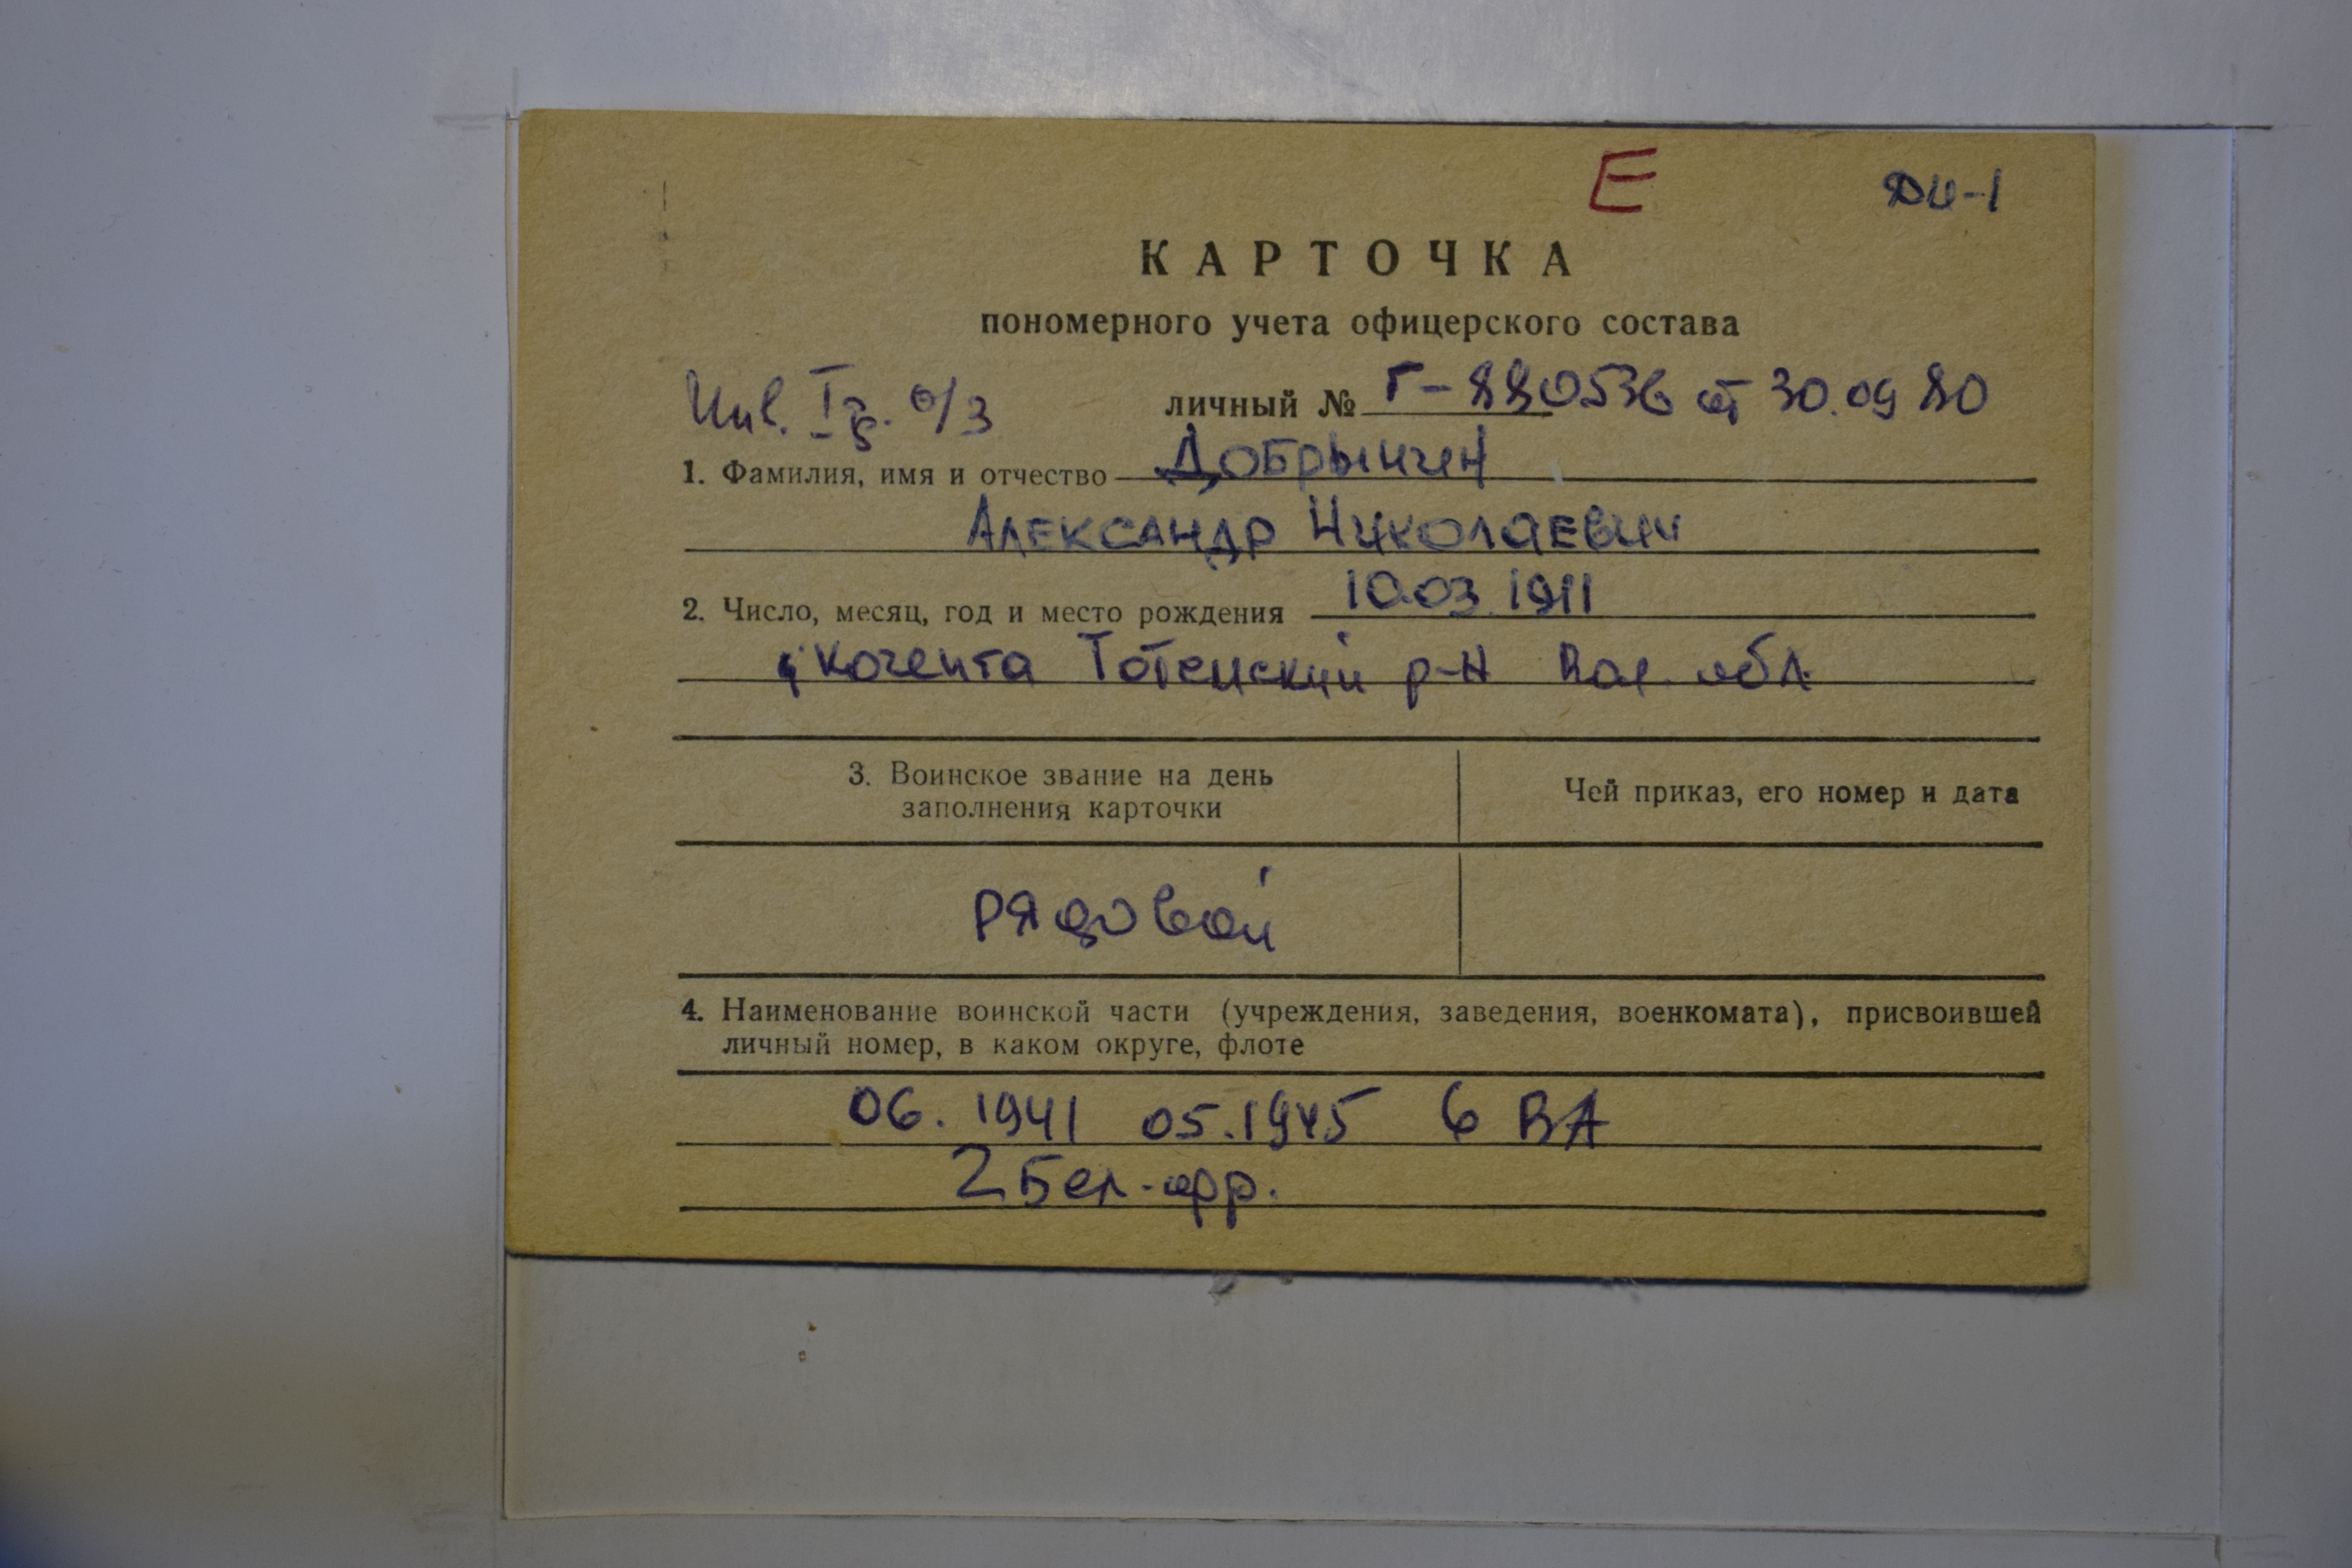 Е ДИ-1
КАРТОЧКА
пономерного учета офицерского состава
Инв. I гр. о/з личный № Г-880536 от 30.09 80
1. Фамилия, имя и отчество Добрынин
Александр Николаевич
2. Число, месяц, год и место рождения 10.03.1911
Тотемский р-н Вол. обл.
3. Воинское звание на день
заполнения карточки
Чей приказ, его номер и дата
рядовой
4. Наименование воинской части (учреждения, заведения, военкомата), присвоившей
личный номер, в каком округе, флоте
06. 1941 05.1945 6 ВА
2 Бел. фр.